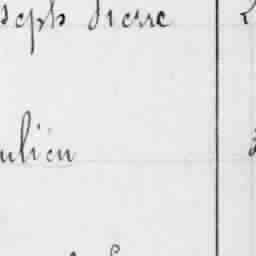 seph Pierre
ulien